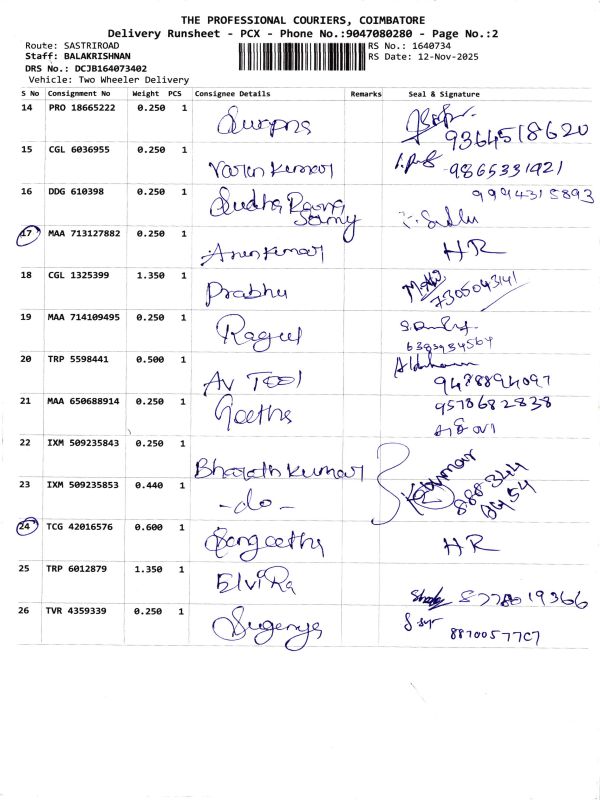 THE PROFESSIONAL COURIERS, COIMBATORE
Delivery Runsheet - PCX - Phone No.:9047080280 - Page No.:2
Route: SASTRIROAD RS No.: 1640734
Staff: BALAKRISHNAN RS Date: 12-Nov-2025
DRS No.: DCJB164073402
Vehicle: Two Wheeler Delivery
S No Consignment No Weight PCS Consignee Details Remarks Seal & Signature
14 PRO 18665222 0.250 1 9364518620
15 CGL 6036955 0.250 1 Varun Kumar 9865331921
16 DDG 610398 0.250 1 Sudha Rama Samy 9994315893
17 MAA 713127882 0.250 1 Arun Kumar HR
18 CGL 1325399 1.350 1 Prabhu 7305043141
19 MAA 714109495 0.250 1 Ragul
20 TRP 5598441 0.500 1 AV Tool 9488894097
21 MAA 650688914 0.250 1 Geetha 9578682838
22 IXM 509235843 0.250 1 Bharath Kumar
23 IXM 509235853 0.440 1 -do-
24 TCG 42016576 0.600 1 Sangeetha HR
25 TRP 6012879 1.350 1 ElviRa
26 TVR 4359339 0.250 1 Sugenya